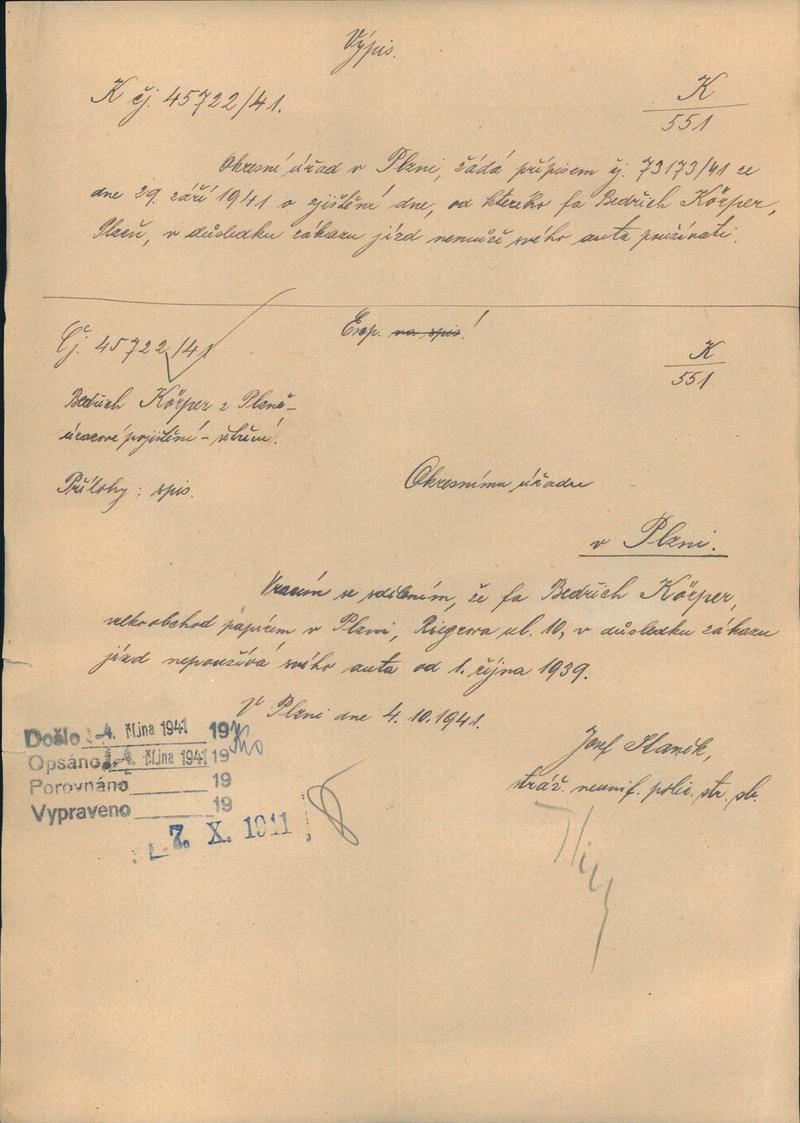 Výpis.
K čj. 45722/41.
K
551
Okresní úřad v Plzni, žádá přípisem čj. 73173/41 ze
dne 29. září 1941 o zjištění dne, od kterého fa Bedřich Körper,
Plzeň, v důsledku zákazu jízd nemůže svého auta používati.
Čj. 45722/41
Exp. na spis!
K
551
Bedřich Körper z Plzně -
úrazové pojištění - šetření.
Přílohy: spis.
Okresnímu úřadu
v Plzni.
Vracím se sdělením, že fa Bedřich Körper,
velkoobchod papírem v Plzni, Riegrova ul. 10, v důsledku zákazu
jízd nepoužívá svého auta od 1. října 1939.
V Plzni dne 4. 10. 1941.
Josef
stráž. neunif. polic. str. sb.
Došlo -4. října 1941 19
Opsáno -4. října 1941 19
Porovnáno 19
Vypraveno 19
7. X. 1941